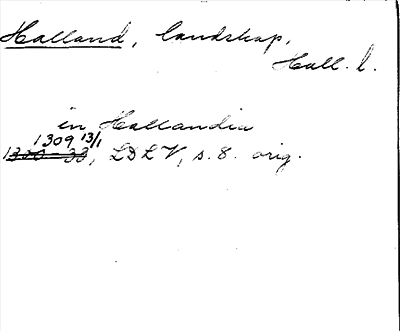 Halland, landskap,
Hall. l.
in Hallandia
1309 13/1
1300-33, LDLV, s. 8. orig.